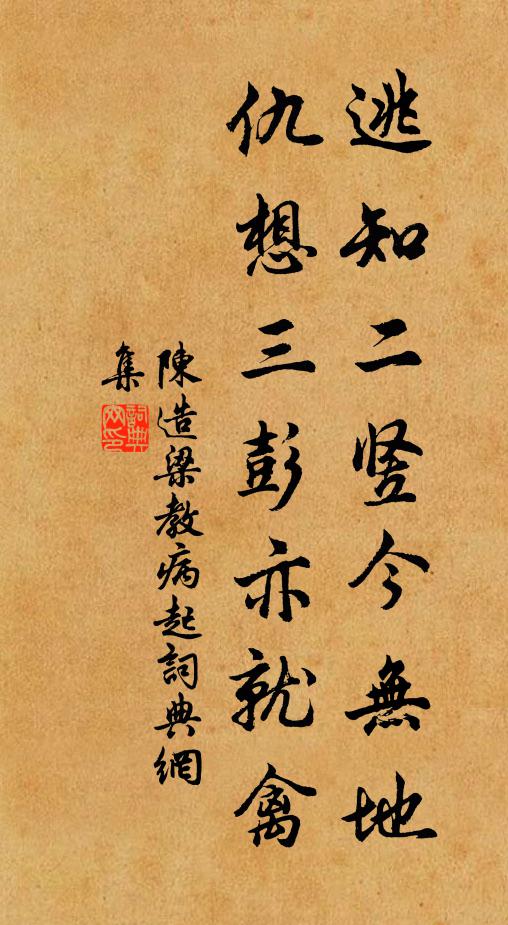 逃知二竖今無地
仇想三彭亦就禽
陳造梁教病起詞典網
集
詞典
网印